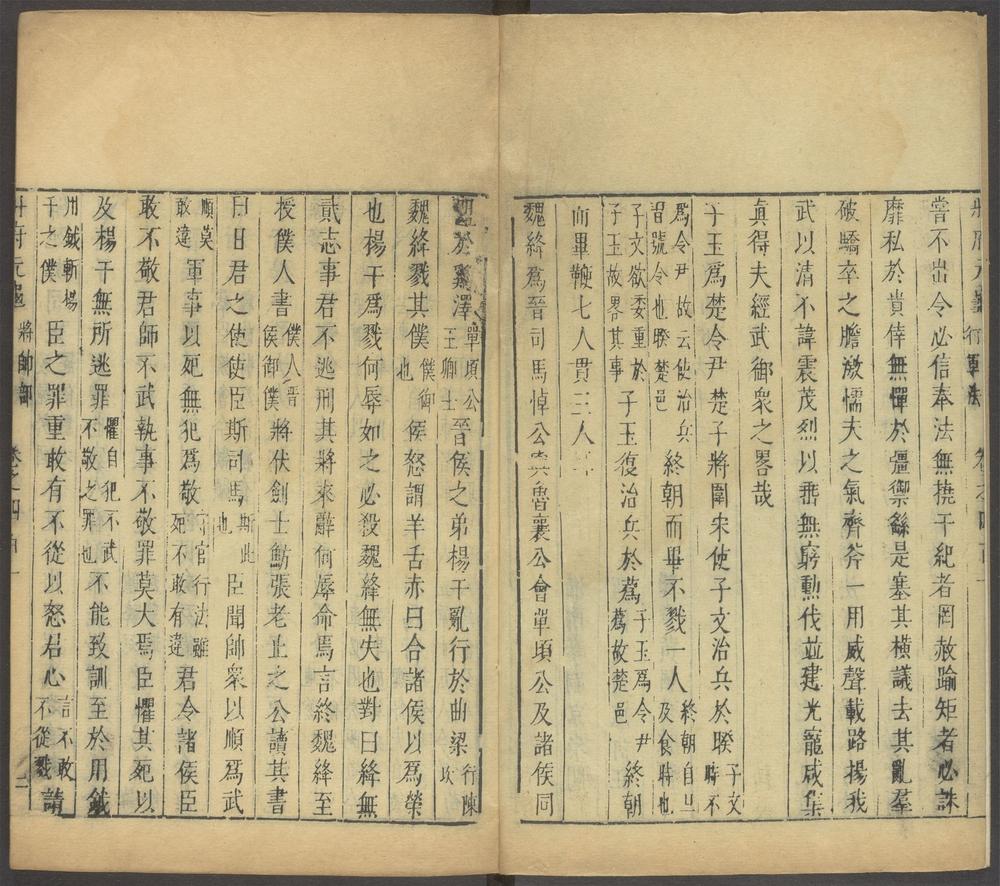 冊府元龜 行軍法 卷之四百一
嘗不出令必信奉法無撓干紀者罔赦踰矩者必誅
靡私於貴倖無憚於彊禦繇是塞其橫議去其亂羣
破驕卒之膽激懦夫之氣齊斧一用威聲載路揚我
武以清不諱震茂烈以垂無窮勲伐並建光寵咸集
眞得夫經武御衆之畧哉
子玉爲楚令尹楚子將圍宋使子文治兵於睽子文時不
爲令尹故云使治兵習號令也睽楚邑終朝而畢不戮一人終朝自旦及食時也
子文欲委重於子玉故畧其事子玉復治兵於蔿子玉爲令尹蔿故楚邑終朝
而畢鞭七人貫三人耳
魏絳爲晉司馬悼公與魯襄公會單頃公及諸侯同
盟於雞澤單頃公王卿士晉侯之弟楊干亂行於曲梁行陳次
魏絳戮其僕僕御也侯怒謂羊舌赤曰合諸侯以爲榮
也楊干爲戮何辱如之必殺魏絳無失也對曰絳無
貳志事君不逃刑其將來辭何辱命焉言終魏絳至
授僕人書僕人晉侯御僕將伏劍士魴張老止之公讀其書
曰日君之使使臣斯司馬斯此也臣聞師衆以順爲武
順莫敢違軍事以死無犯爲敬守官行法雖死不敢有違君令諸侯臣
敢不敬君師不武執事不敬罪莫大焉臣懼其死以
及楊干無所逃罪懼自犯不武不敬之罪也不能致訓至於用鉞
用鉞斬楊干之僕臣之罪重敢有不從以怒君心言不敢不從戮請
冊府元龜 將帥部 卷之四百一 二